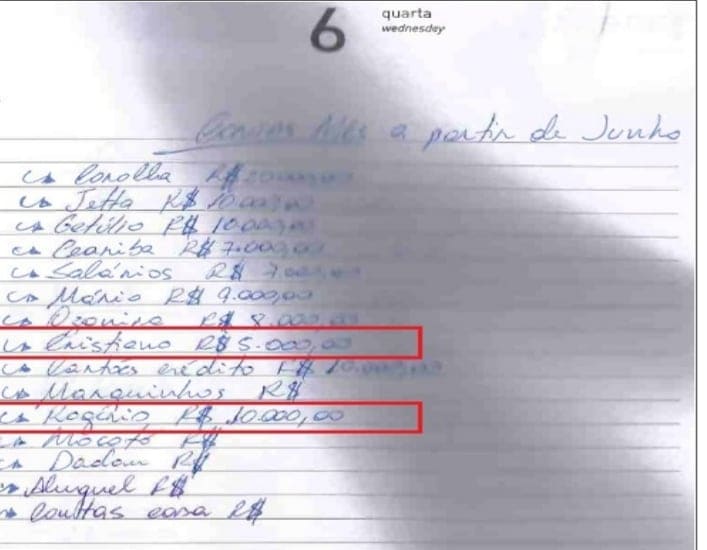 6
quarta
wednesday
Contas Mês a partir de Junho
↳ Corolla R$ 20.000,00
↳ Jetta R$ 10.000,00
↳ Getúlio R$ 10.000,00
↳ R$ 7.000,00
↳ Salários R$ 7.000,00
↳ Mário R$ 9.000,00
↳ Ozanira R$ 8.000,00
↳ Cristiano R$ 5.000,00
↳ Cartões crédito R$ 10.000,00
↳ Marquinhos R$
↳ Rogério R$ 10.000,00
↳ Mocotó R$
↳ Dadau R$
↳ Aluguel R$
↳ Contas casa R$